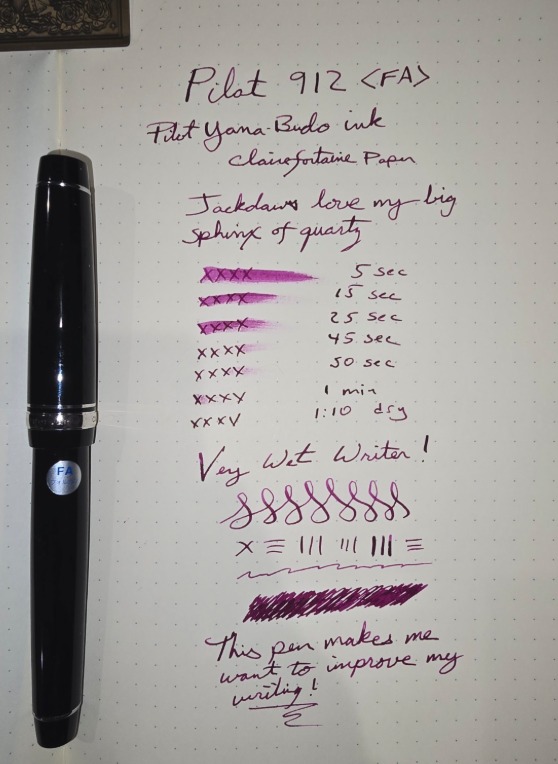 Pilot 912 <FA>
Pilot Yama-Budo ink
Clairefontaine Paper
Jackdaws love my big
sphinx of quartz
XXXX 5 sec
XXXX 15 sec
XXXX 25 sec
XXXX 45 sec
XXXX 50 sec
XXXX 1 min
XXXV 1:10 dry
Very Wet Writer!
X
This pen makes me
want to improve my
writing!
FA